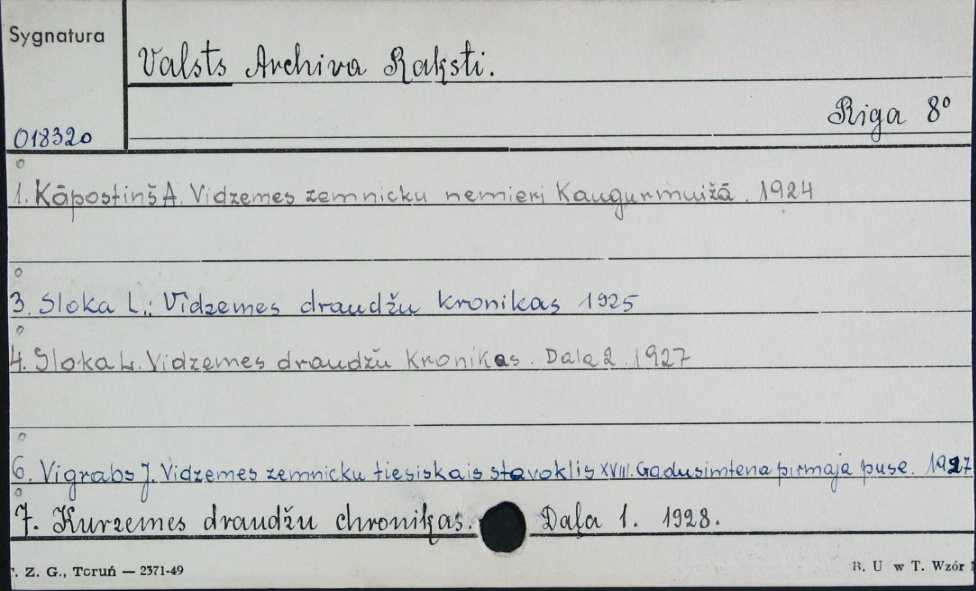 Sygnatura
Valsts Archiva Raksti.
Riga 8°
018320
1. Kāpostiņš A. Vidzemes zemnicku nemieri Kaugurmuižā. 1924
3. Sloka L.: Vidzemes draudžu kronikas 1925
4. Sloka L. Vidzemes draudžu Kronikas. Dala 2. 1927
6. Vigrabs J. Vidzemes zemnicku tiesiskais stavoklis XVIII. Gadusimtena pirmaja puse. 1927
7. Kurzemes draudžu chronikas. Daļa 1. 1928.
. Z. G., Toruń — 2371-49
B. U w T. Wzór